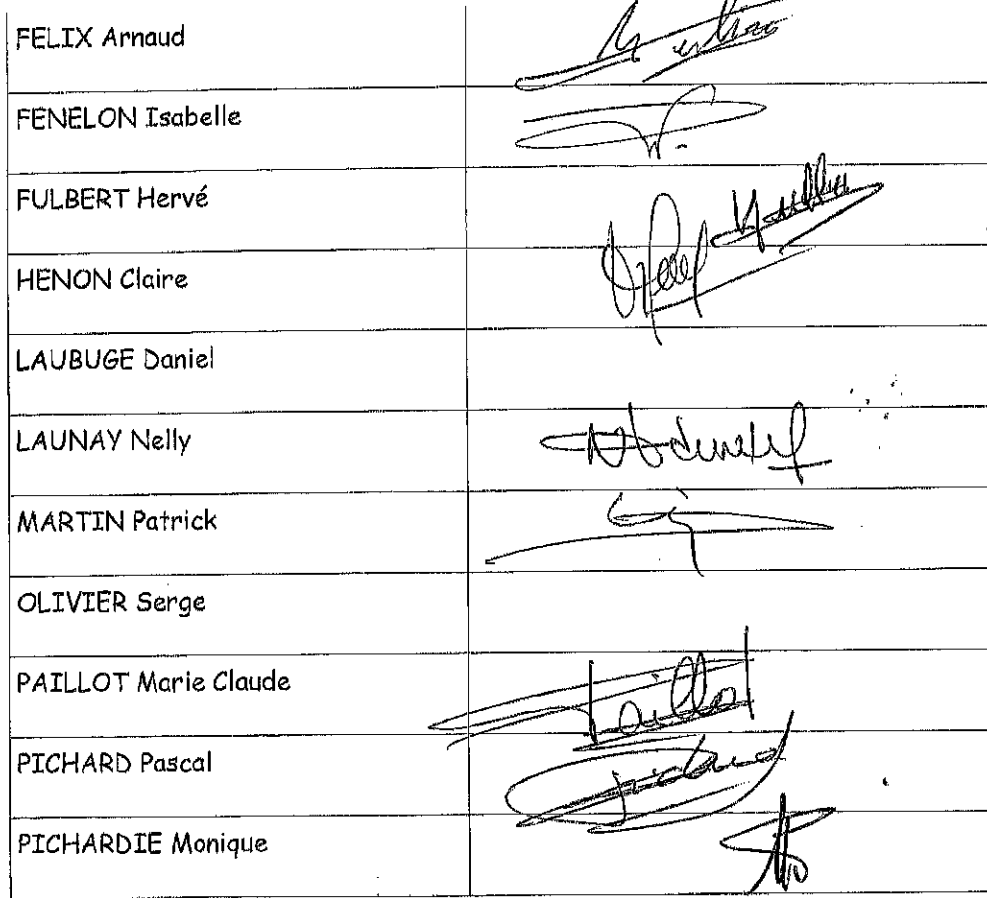 FELIX Arnaud
FENELON Isabelle
FULBERT Hervé
HENON Claire
LAUBUGE Daniel
LAUNAY Nelly
MARTIN Patrick
OLIVIER Serge
PAILLOT Marie Claude
Paillot
PICHARD Pascal
Pichard
PICHARDIE Monique